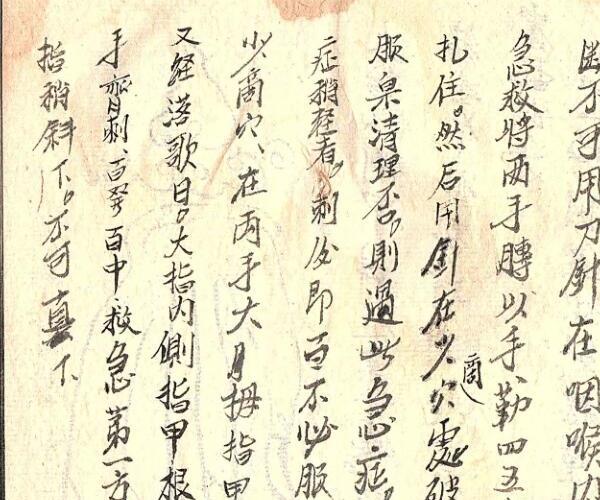 不可用刀針在咽喉内
急救將两手膊以手勒四五
扎住。然后用針在少商穴處破
服泉清理否。則過此急心症。
症稍轻者。刺後即 不必服
少商穴、在两手大 拇指甲
又経 歌曰。大指内側指甲根
手 刺、百發百中、救急第一方
指稍斜下。不可真下